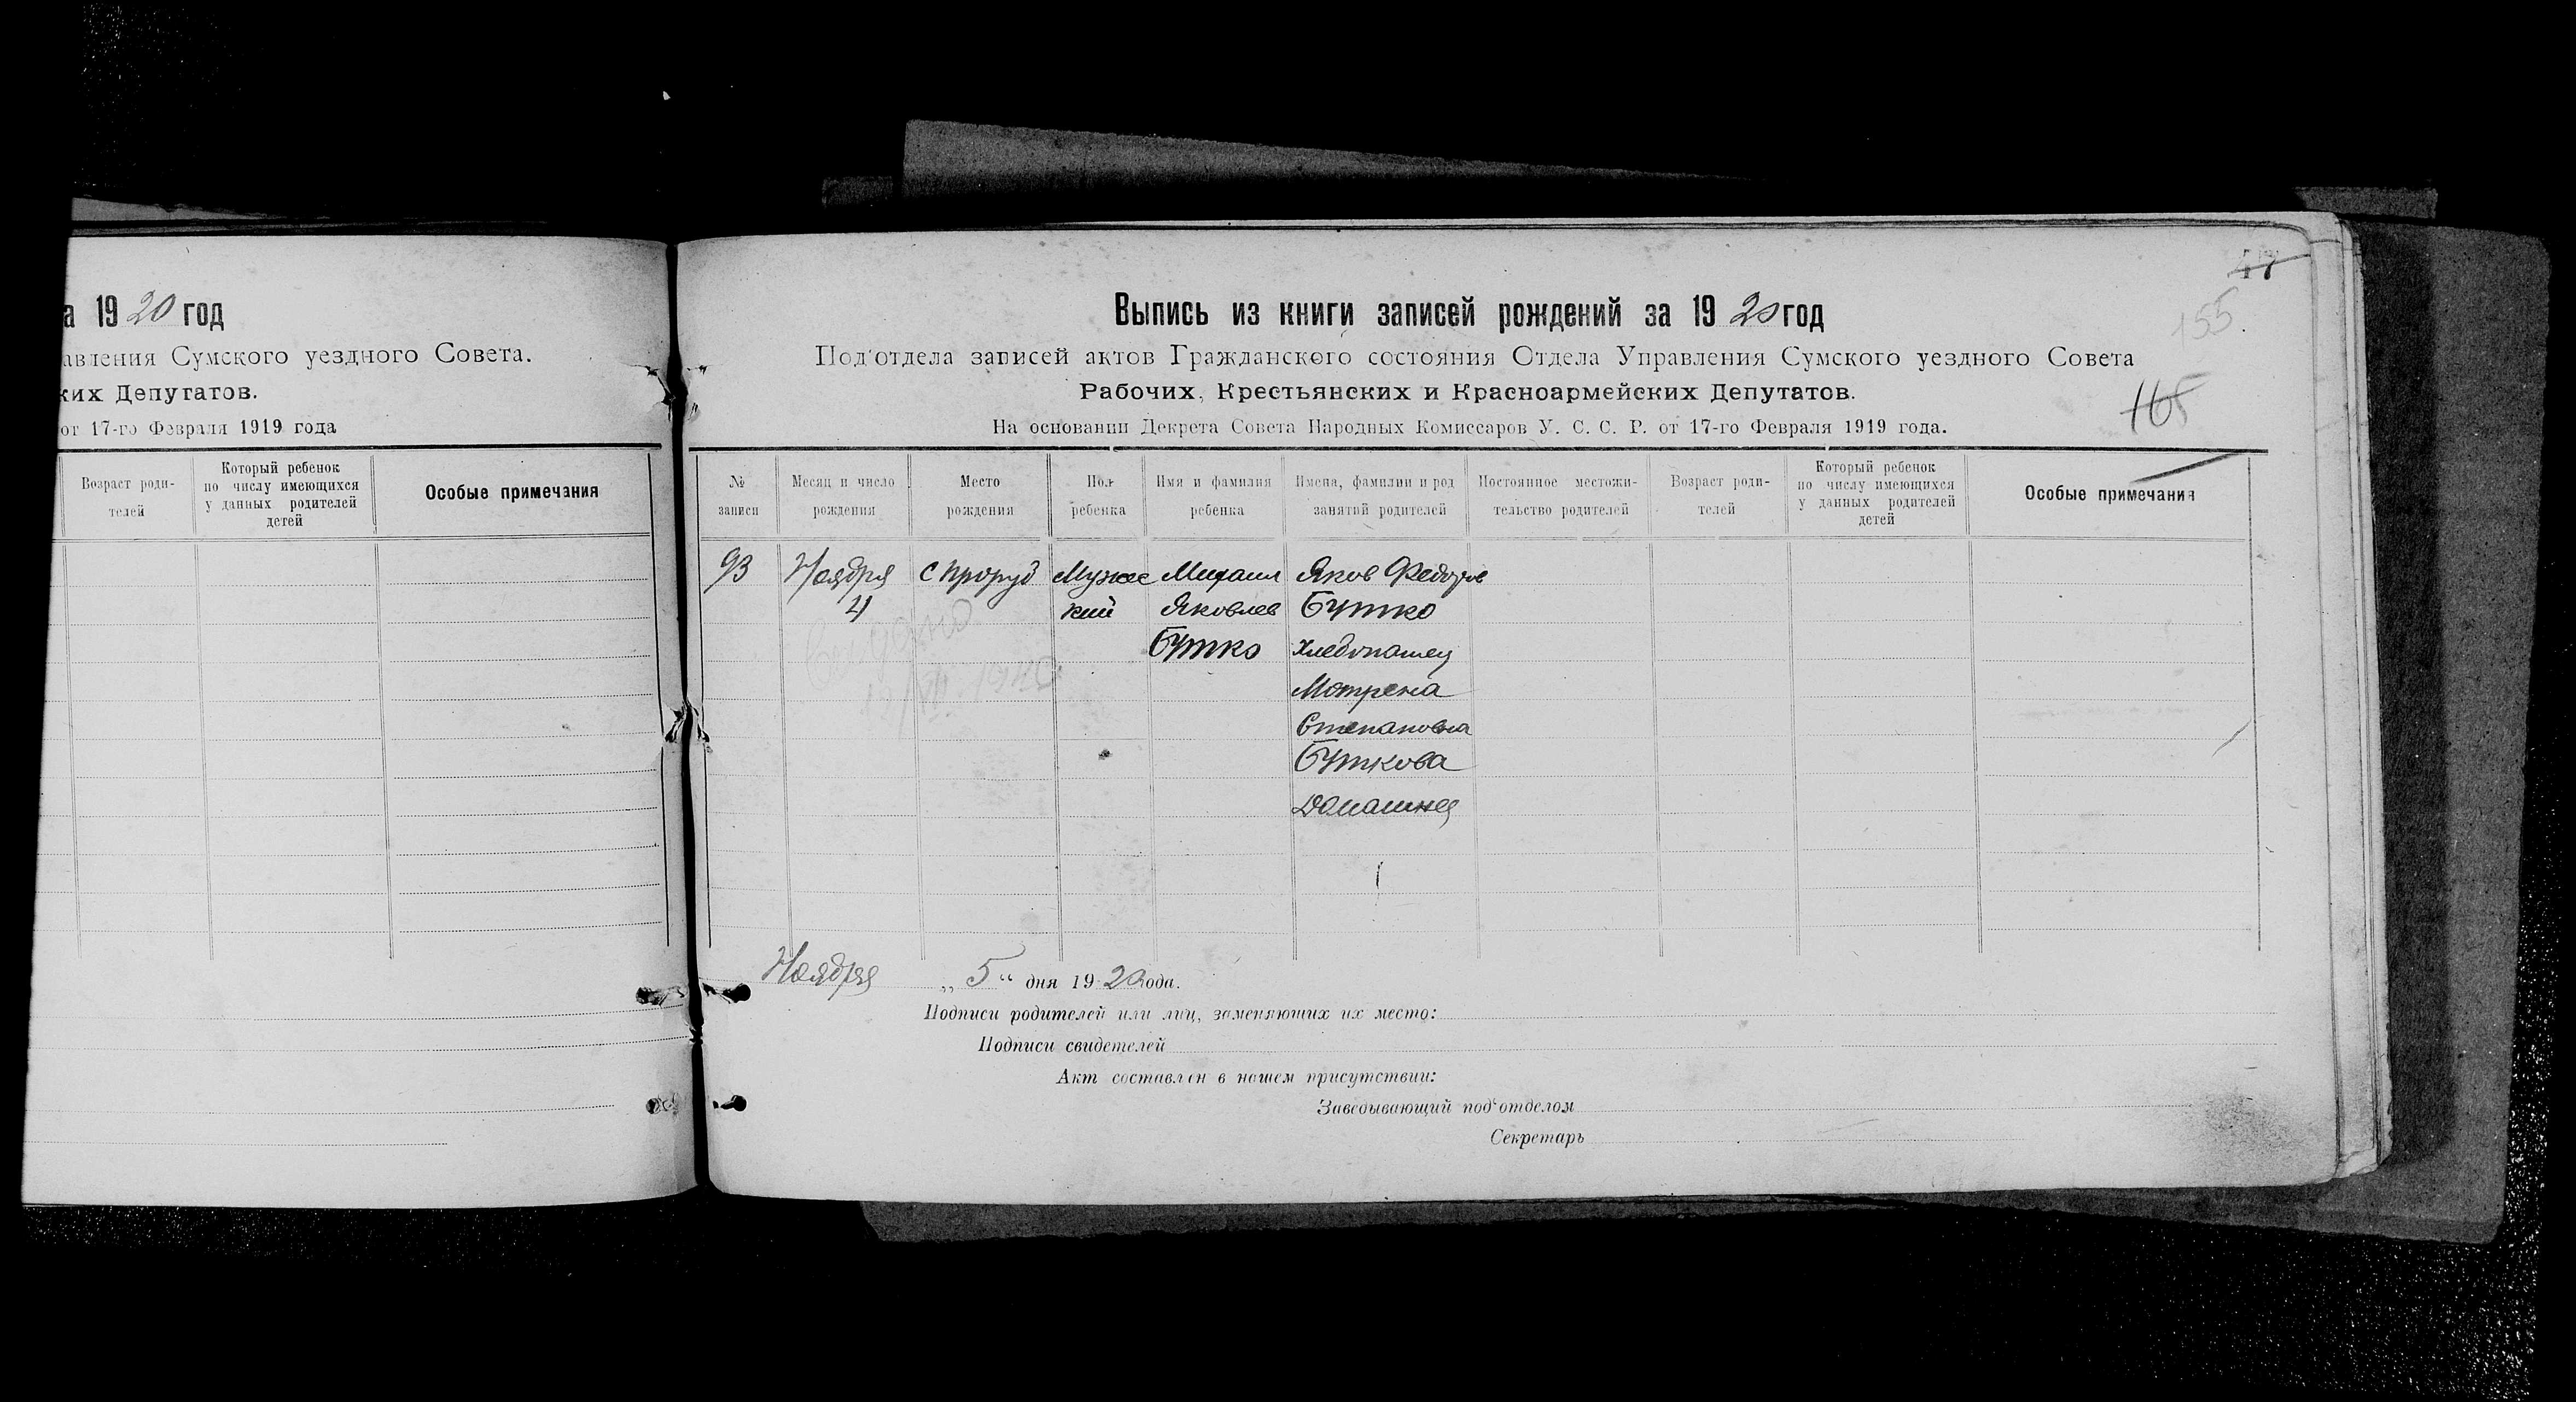 а 1920 год
авления Сумского уездного Совета.
ких Депутатов.
от 17-го Февраля 1919 года
Возраст роди-
телей
Который ребенок
по числу имеющихся
у данных родителей
детей
Особые примечания
47
155
Выпись из книги записей рождений за 1920 год
Под'отдела записей актов Гражданского состояния Отдела Управления Сумского уездного Совета
Рабочих, Крестьянских и Красноармейских Депутатов.
165
На основании Декрета Совета Народных Комиссаров У. С. С. Р. от 17-го Февраля 1919 года.
№
записи
Месяц и число
рождения
Место
рождения
Пол
ребенка
Имя и фамилия
ребенка
Имена, фамилии и род
занятий родителей
Постоянное местожи-
тельство родителей
Возраст роди-
телей
Который ребенок
по числу имеющихся
у данных родителей
детей
Особые примечания
93 Ноября с Проруб Мужес Михаил Яков Федоров
4 кий Яковлев Бутко
Бутко Хлебопашец
Мотрена
Степановна
Буткова
Домашнец
Ноября „ 5 “ дня 1920 года.
Подписи родителей или лиц, заменяющих их место:
Подписи свидетелей
Акт составлен в нашем присутствии:
Заведывающий под'отделом
Секретарь